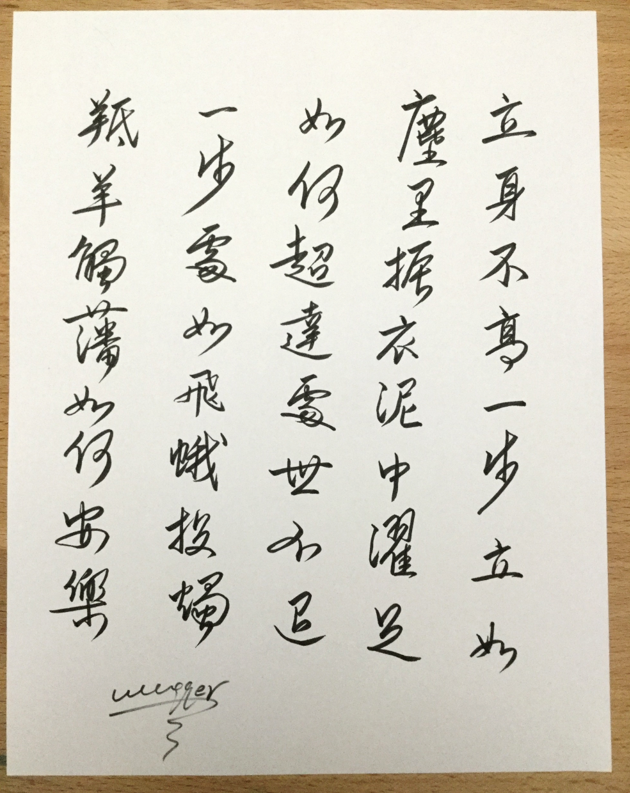 立身不高一步立如
塵里振衣泥中濯足
如何超達處世不退
一步處如飛蛾投燭
羝羊觸藩如何安樂